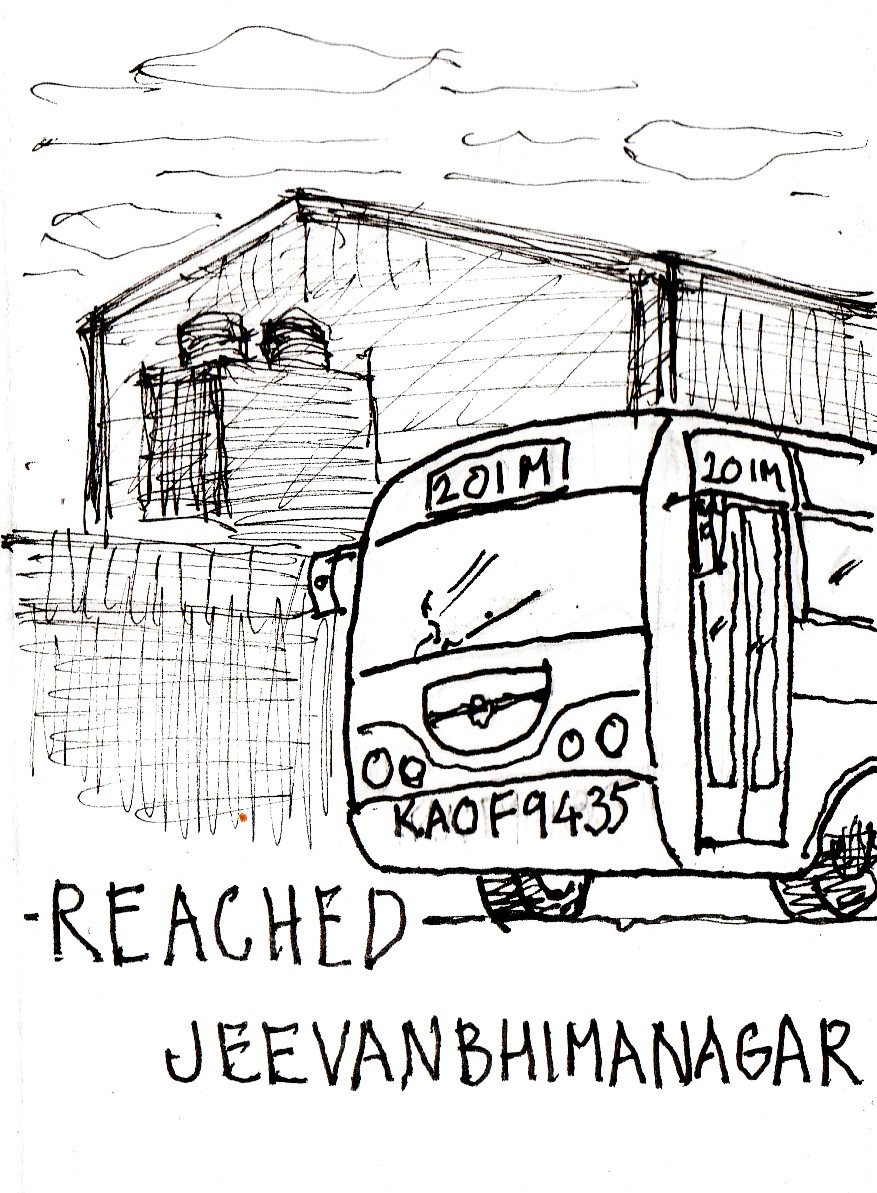 201M
201M
KA0F9435
-REACHED
JEEVANBHIMANAGAR